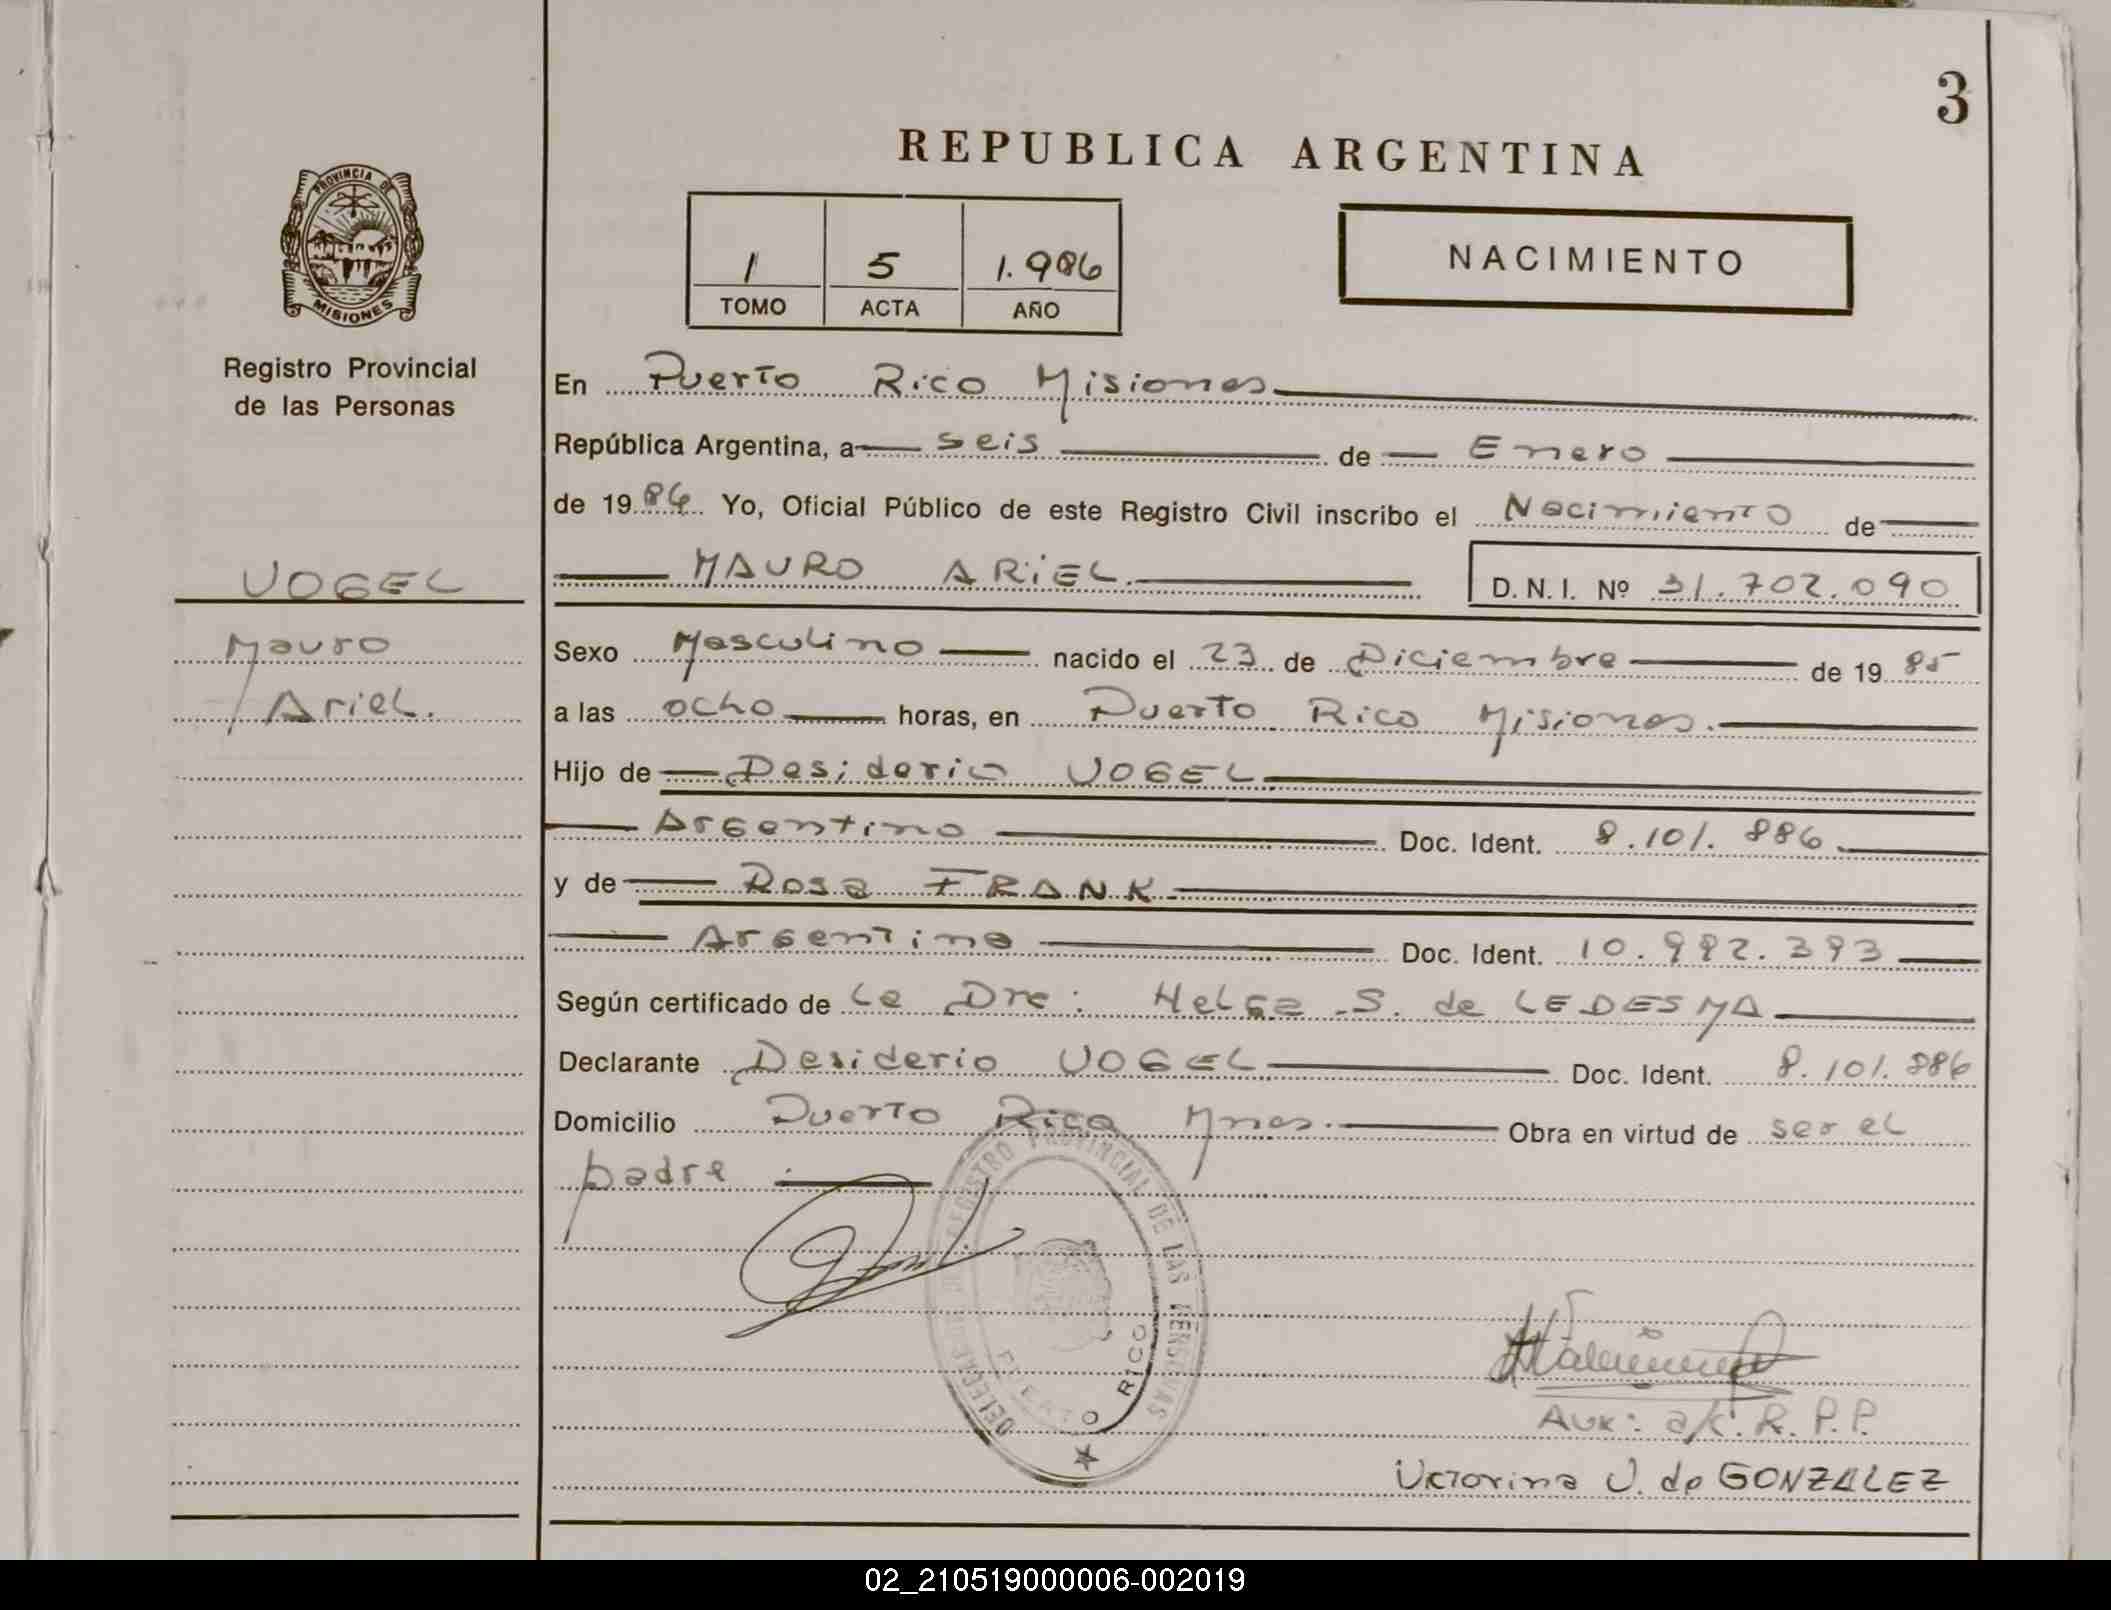 3
REPUBLICA ARGENTINA
PROVINCIA DE
MISIONES
Registro Provincial
de las Personas
1 5 1.986
TOMO ACTA AÑO
NACIMIENTO
En Puerto Rico Misiones
República Argentina, a seis de Enero
de 1986 Yo, Oficial Público de este Registro Civil inscribo el Nacimiento de
VOGEL
Mauro
Ariel.
MAURO ARIEL. D. N. I. Nº 31.702.090
Sexo Masculino nacido el 23 de Diciembre de 1985
a las ocho horas, en Puerto Rico Misiones.
Hijo de Desiderio VOGEL
Argentino Doc. Ident. 8.101.886
y de Rosa FRANK
Argentina Doc. Ident. 10.992.393
Según certificado de La Dra: Helga S. de LEDESMA
Declarante Desiderio VOGEL Doc. Ident. 8.101.886
Domicilio Puerto Rico Mnes. Obra en virtud de ser el
padre
REGISTRO PROVINCIAL DE LAS PERSONAS
PUERTO RICO
Aux: a/c. R. P. P.
Victorina V. de GONZALEZ
02_210519000006-002019